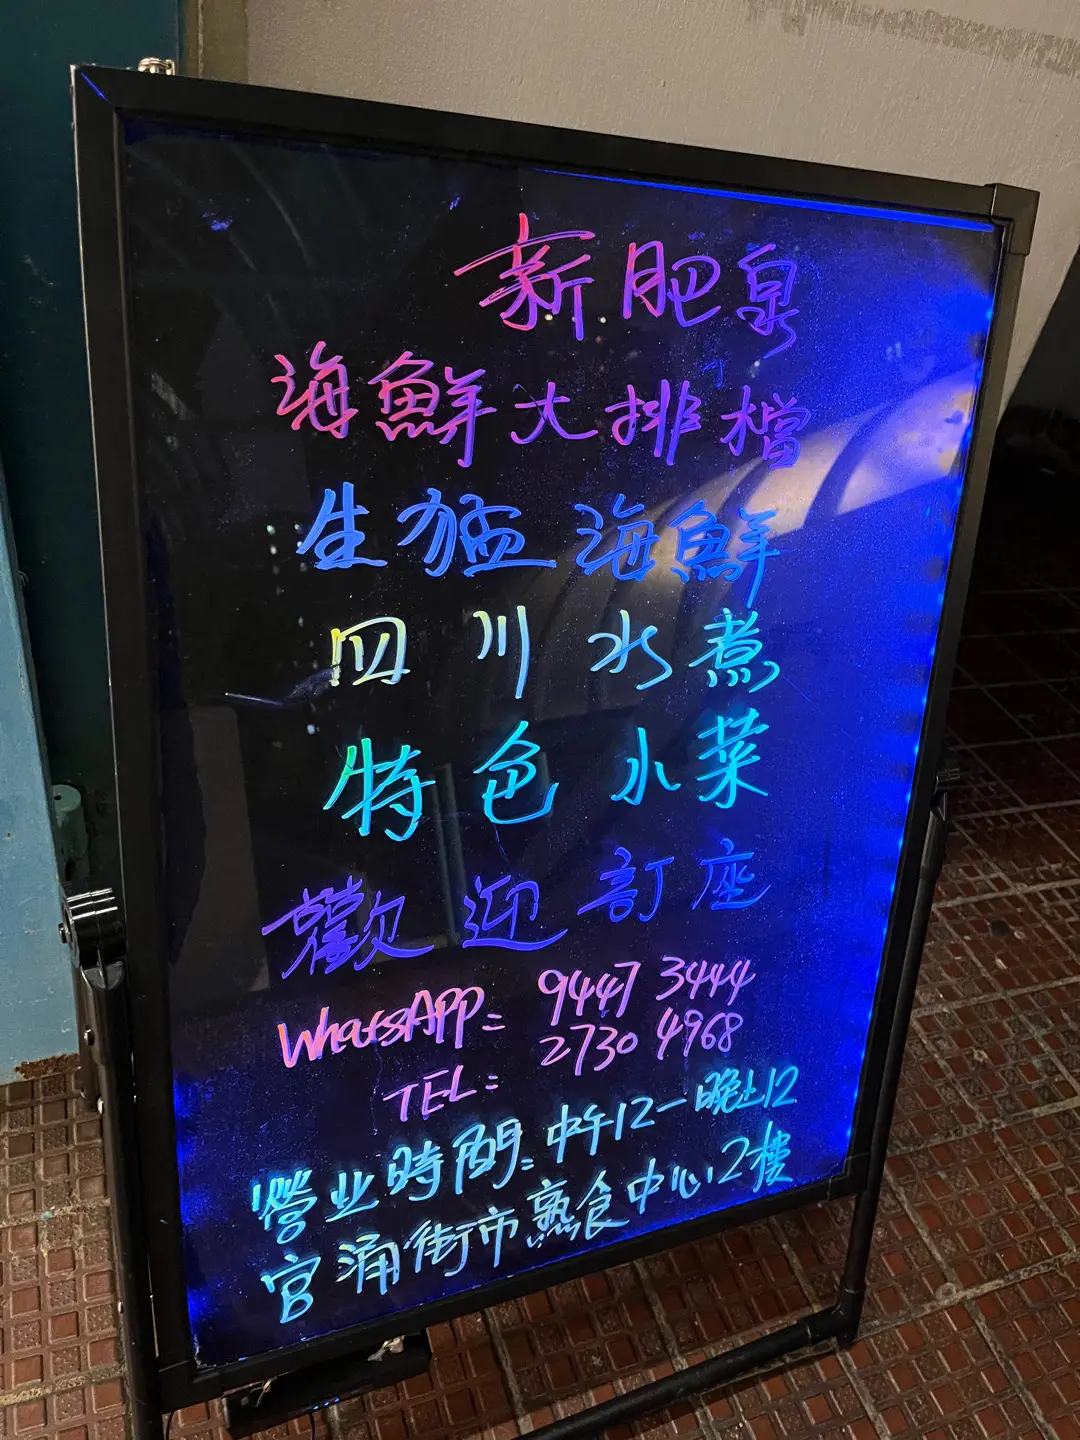 新肥泉
海鮮大排檔
生猛海鮮
四川水煮
特色小菜
歡迎訂座
WhatsAPP: 9447 3444
TEL: 2730 4968
營业時間:中午12一晚上12
官涌街市熟食中心2樓